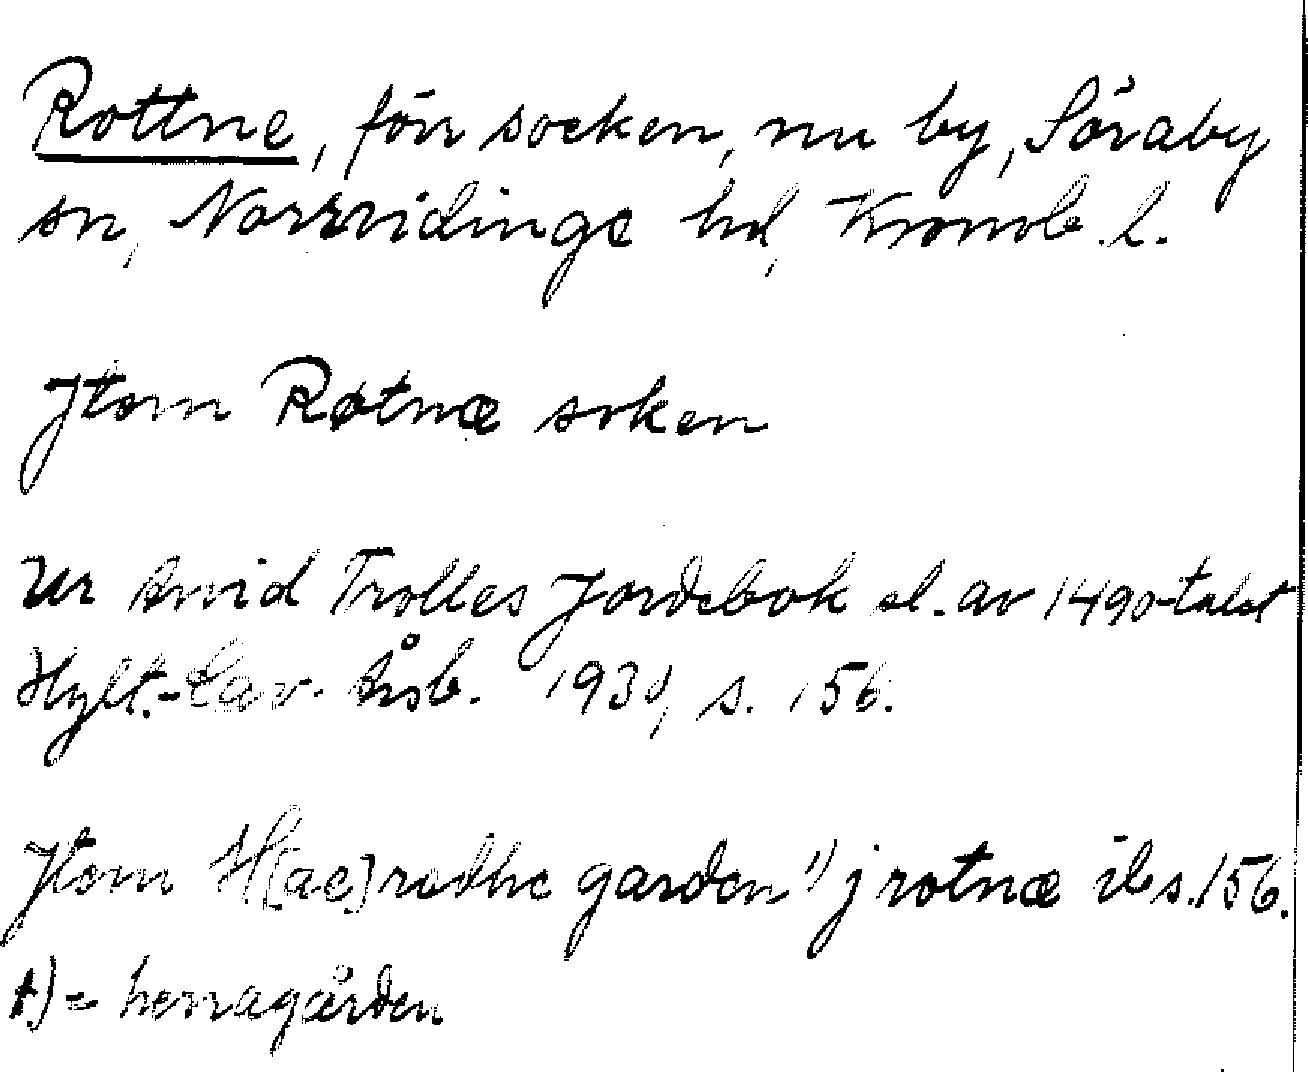 Rottne, förr socken, nu by, Söraby
sn, Norrvidinge hd, Kronob. l.
Jtem Røtnæ soken
Ur Arvid Trolles Jordebok sl. av 1490-talet
Hylt.-Cav. Årsb. 1930, s. 156.
Jtem H[ae]redhe garden 1) j rotnæ ib s. 156.
1) = herragården